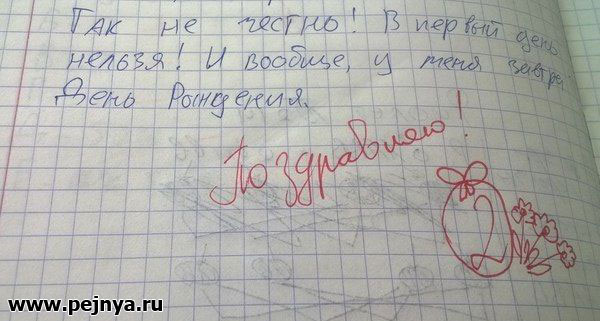 Так не честно! В первый день
нельзя! И вообще, у меня завтра
День Рождения.
Поздравляю!
2
www.pejnya.ru